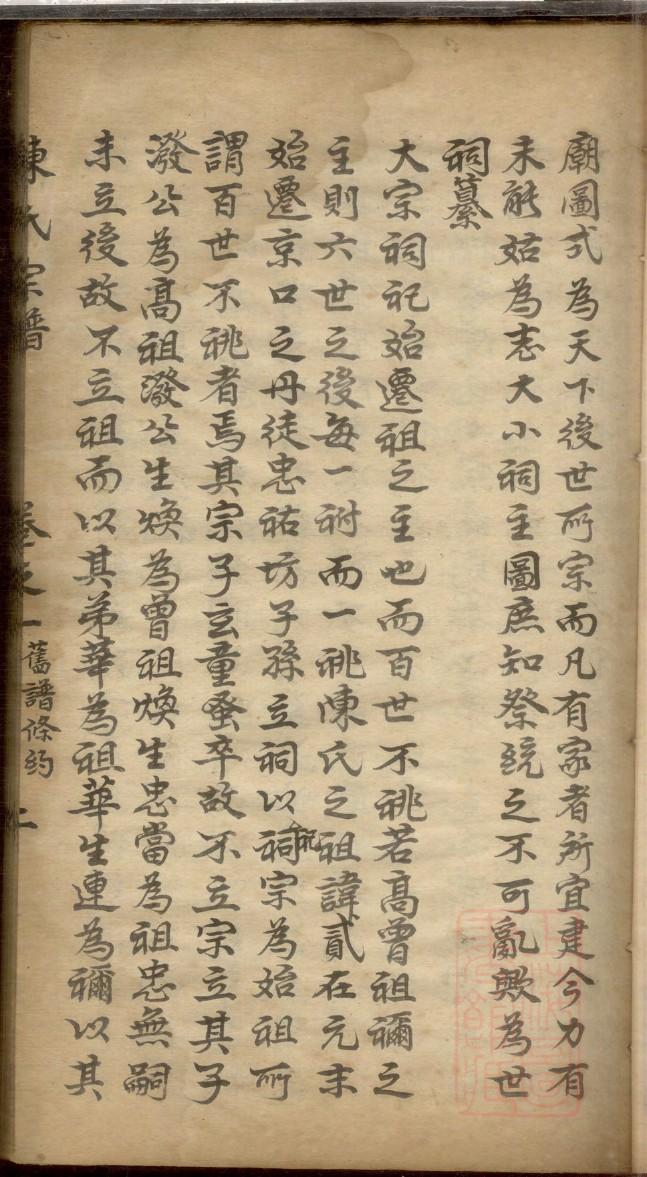 廟圖式為天下後世所宗而凡有家者所宜建今力有
未能姑為志大小祠主圖庶知祭統之不可亂歟為世
祠纂
大宗祠祀始遷祖之主也而百世不祧若高曾祖禰之
主則六世之後每一祔而一祧陳氏之祖諱貳在元末
始遷京口之丹徒忠祐坊子孫立祠以祠宗為始祖所
祀
謂百世不祧者焉其宗子玄童蚤卒故不立宗立其子
潑公為高祖潑公生煥為曾祖煥生忠當為祖忠無嗣
未立後故不立祖而以其弟華為祖華生連為禰以其
陳氏宗譜 卷之一 舊譜條約 二